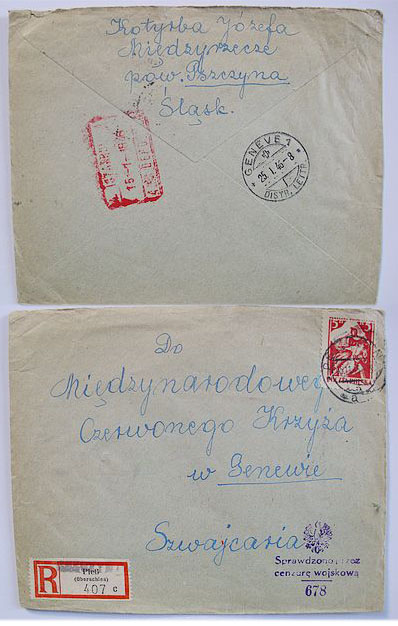 Kotyrba Józefa
Międzyrzecze
pow. Pszczyna
Śląsk.
15-1-194
GENÈVE 1
25.I.46-8
DISTR. LETTR.
Do
Międzynarodowego
Czerwonego Krzyża
w Genewie
Szwajcaria
5 zł
POCZTA POLSKA
a
R
Pleß
(Oberschles)
407 c
Sprawdzono przez
cenzurę wojskową
678